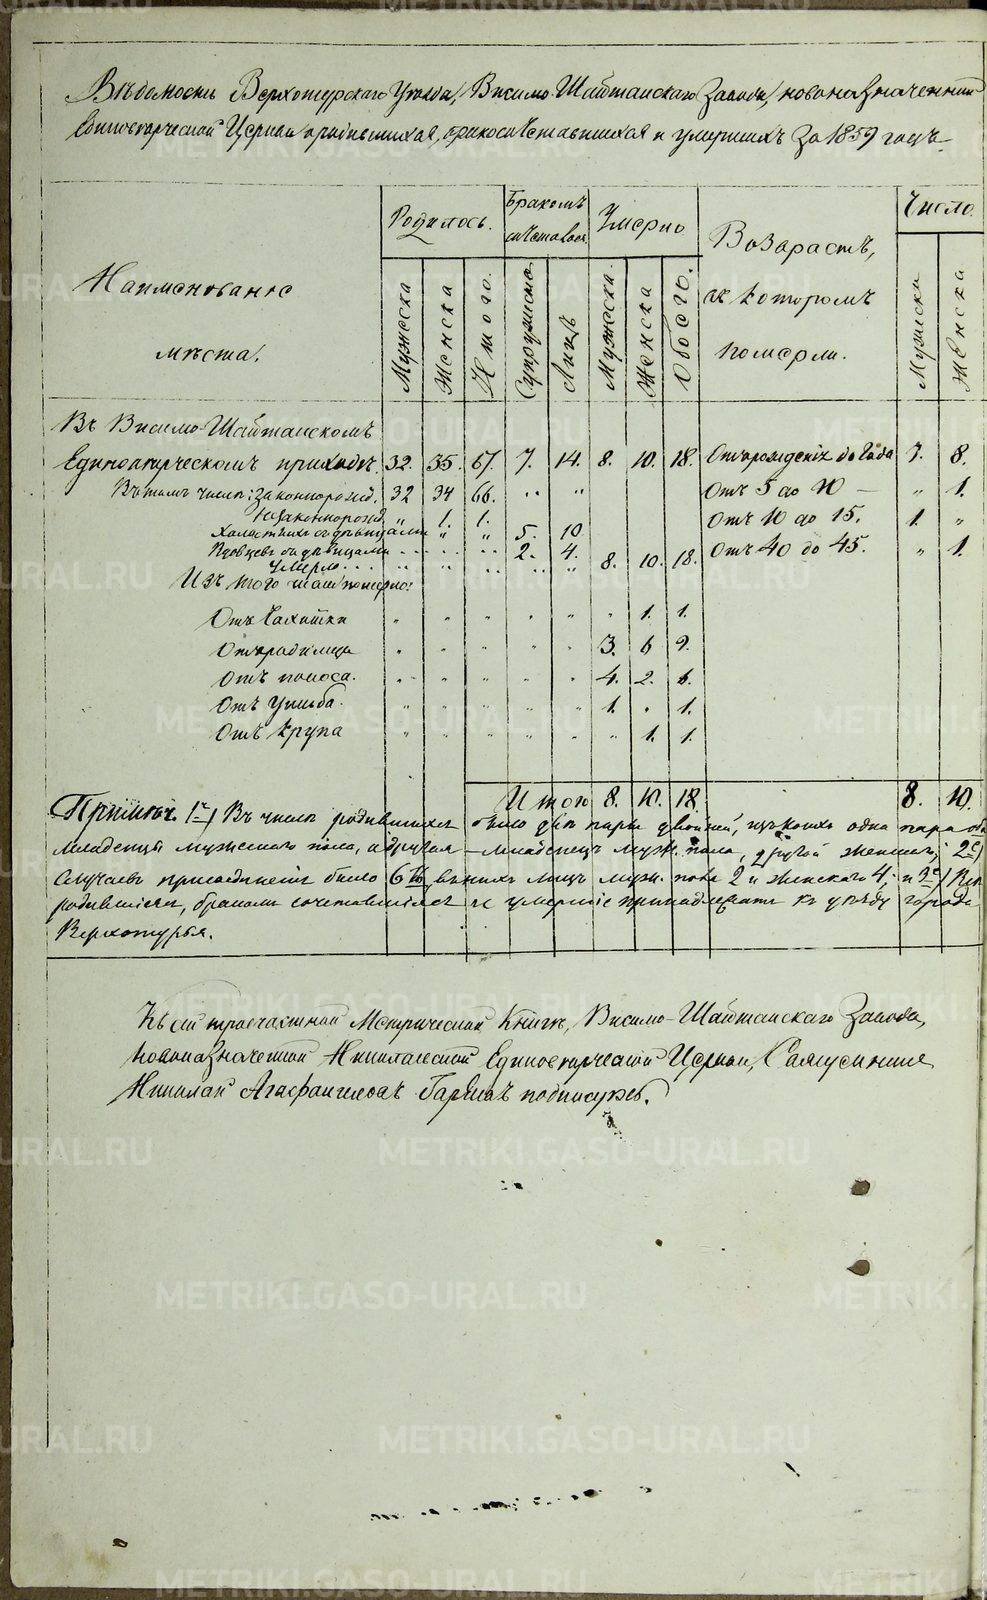 Вѣдомость Верхотурскаго Уѣзда, Висимо-Шайтанскаго Завода, новоназначенной
Единовѣрческой Церкви о родившихся, бракосочетавшихся и умершихъ за 1859 годъ.
Наименованіе
мѣста.
Родилось.
Бракомъ
сочеталось
Умерло
Возрастъ,
въ которомъ
померли.
Число.
Мужеска
Женска
Итого.
Супружествъ
Лицъ
Мужеска.
Женска
Обоего.
Мужеска
Женска
Въ Висимо-Шайтанскомъ
Единовѣрческомъ приходѣ. 32. 35. 67. 7. 14. 8. 10. 18. Отъ рожденія до года 7. 8.
Въ томъ числѣ: законнорожд. 32 34 66. " " Отъ 5 до 10 — " 1.
Незаконнорожд. " 1. 1. Отъ 10 до 15. 1. "
Холостыхъ съ дѣвицами " " 5. 10
Вдовцевъ съ дѣвицами 2. 4. Отъ 40 до 45. " 1.
Умерло . . . 8. 10. 18.
Изъ того числа померло:
Отъ Чахотки " " " " " " 1. 1.
Отъ родимца " " " " " 3. 6 9.
Отъ поноса. " " " " " 4. 2. 6.
Отъ ушиба. " " " " " 1. " 1.
Отъ крупа " " " " " " 1. 1.
Итого 8. 10. 18. 8. 10.
Примѣч. 1е) Въ числѣ родившихся было двѣ пары двойней, изъ коихъ одна пара оба
младенцы мужескаго пола, а другая – младенецъ муж. пола, другой женскаго; 2е)
Случаевъ присоединенія было 6ть, въ нихъ лицъ муж. пола 2 и женскаго 4; и 3е) Всѣ
родившіеся, бракомъ сочетавшіеся и умершіе принадлежатъ къ уѣзду города
Верхотурья.
Къ сей троечастной Метрической Книгѣ, Висимо-Шайтанскаго Завода,
новоназначенной Николаевской Единовѣрческой Церкви, Священникъ
Николай Агафангеловъ подписуюсь.
METRIKI.GASO-URAL.RU